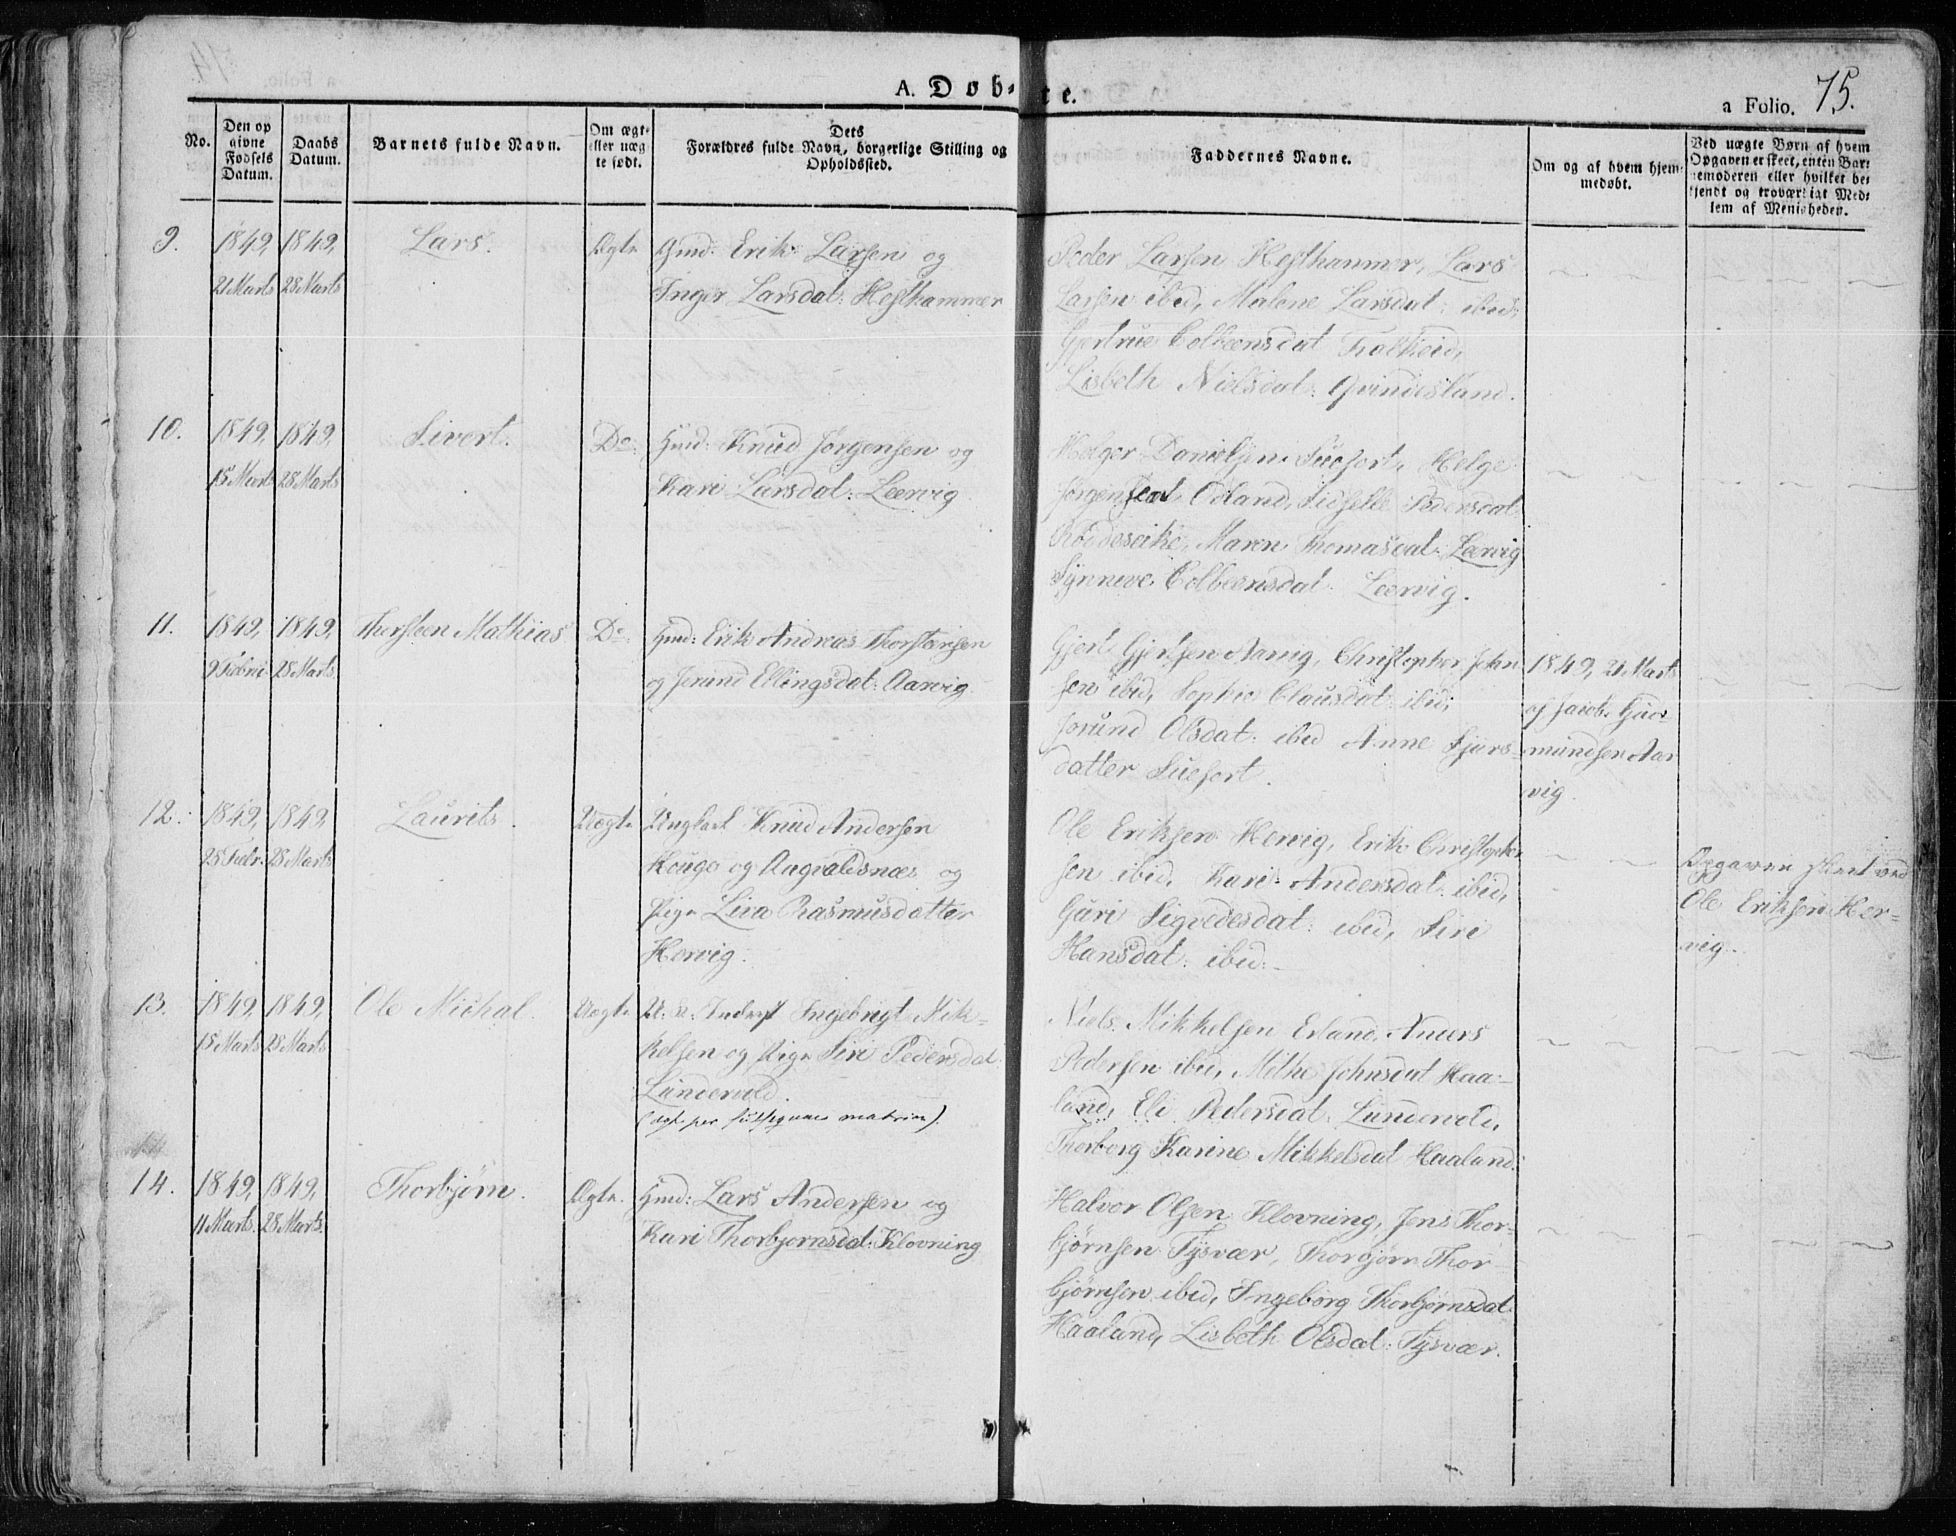 75.
A. Døbte.
a Folio.
No.
Den op
givne
Fødsels
Datum.
Daabs
Datum.
Barnets fulde Navn.
Om ægt-
eller uæg-
te født.
Dets
Forældres fulde Navn, borgerlige Stilling og
Opholdssted.
Faddernes Navne.
Om og af hvem hjem-
medøbt.
Ved uægte Børn af hvem
Opgaven er skeet, enten Bar-
nemoderen eller hvilket be-
kjendt og troværdigt Med-
lem af Menigheden.
9.
1849, 1849,
21 Marts 28 Marts
Lars.
Ægte
Gmd: Erik Larsen og
Inger Larsdat: Hesthammer
Peder Larsen Hesthammer, Lars
Larsen ibid, Malene Larsdat: ibid,
Gjertrue Colbeensdat
Lisbeth Nielsdat: Qvindesland.
10.
1849, 1849,
15 Marts 28 Marts
Sivert.
Do:
Hmd: Knud Jørgensen og
Kari Larsdat: Leervig
Holger Danielsen Suefort, Helge
Jørgensdat Odland, Sidselle Pedersdat
Maren Thomasdat: Leervig
Synneve Colbeensdat: Leervig.
11.
1849, 1849,
9 Februr 28 Marts
Thorsteen Mathias
Do:
Hmd: Erik Andreas Thorstensen
og Jorund Ellingsdat: Aarvig
Gjert Gjertsen Aarvig, Christopher John
sen ibid, Sophie Clausdat: ibid,
Jorund Olsdat: ibid Anne Sjurs-
datter Suefort.
1849, 21 Marts
af Jacob Gud-
mundsen Aar
vig.
12.
1849, 1849,
25 Febr. 28 Marts
Laurits.
Uægte
Ungkarl Knud Andersen
Houge og Augvaldsnæs og
Pige Lira Rasmusdatter
Hervig.
Ole Eriksen Hervig, Erik Christopher
sen ibid, Kari Andersdat: ibid,
Guri Sigvedesdat: ibid, Siri
Hansdat: ibid:
Opgaven skeet ved
Ole Eriksen Her-
vig.
13.
1849, 1849,
15 Marts 28 Marts
Ole Michal.
Uægte
Inderst Ingebrigt Mik-
kelsen og Pige Siri Pedersdat
Lundervold.
(ægte per subsequens matrim).
Niels Mikkelsen Erland, Anders
Pedersen ibid, Mithe Johnsdat Haa-
land, Eli Pedersdat: Lundervold,
Thorborg Karine Mikkelsdat Haaland.
14.
1849, 1849,
11 Marts. 28 Marts.
Thorbjørn.
Ægte.
Hmd: Lars Andersen og
Kari Thorbjørnsdat: Klovning
Halvor Olsen Klovning, Jens Thor-
bjørnsen Tysvær, Thorbjørn Thor
bjørnsen ibid, Ingeborg Thorbjørnsdat
Haaland, Lisbeth Olsdat: Tysvær.